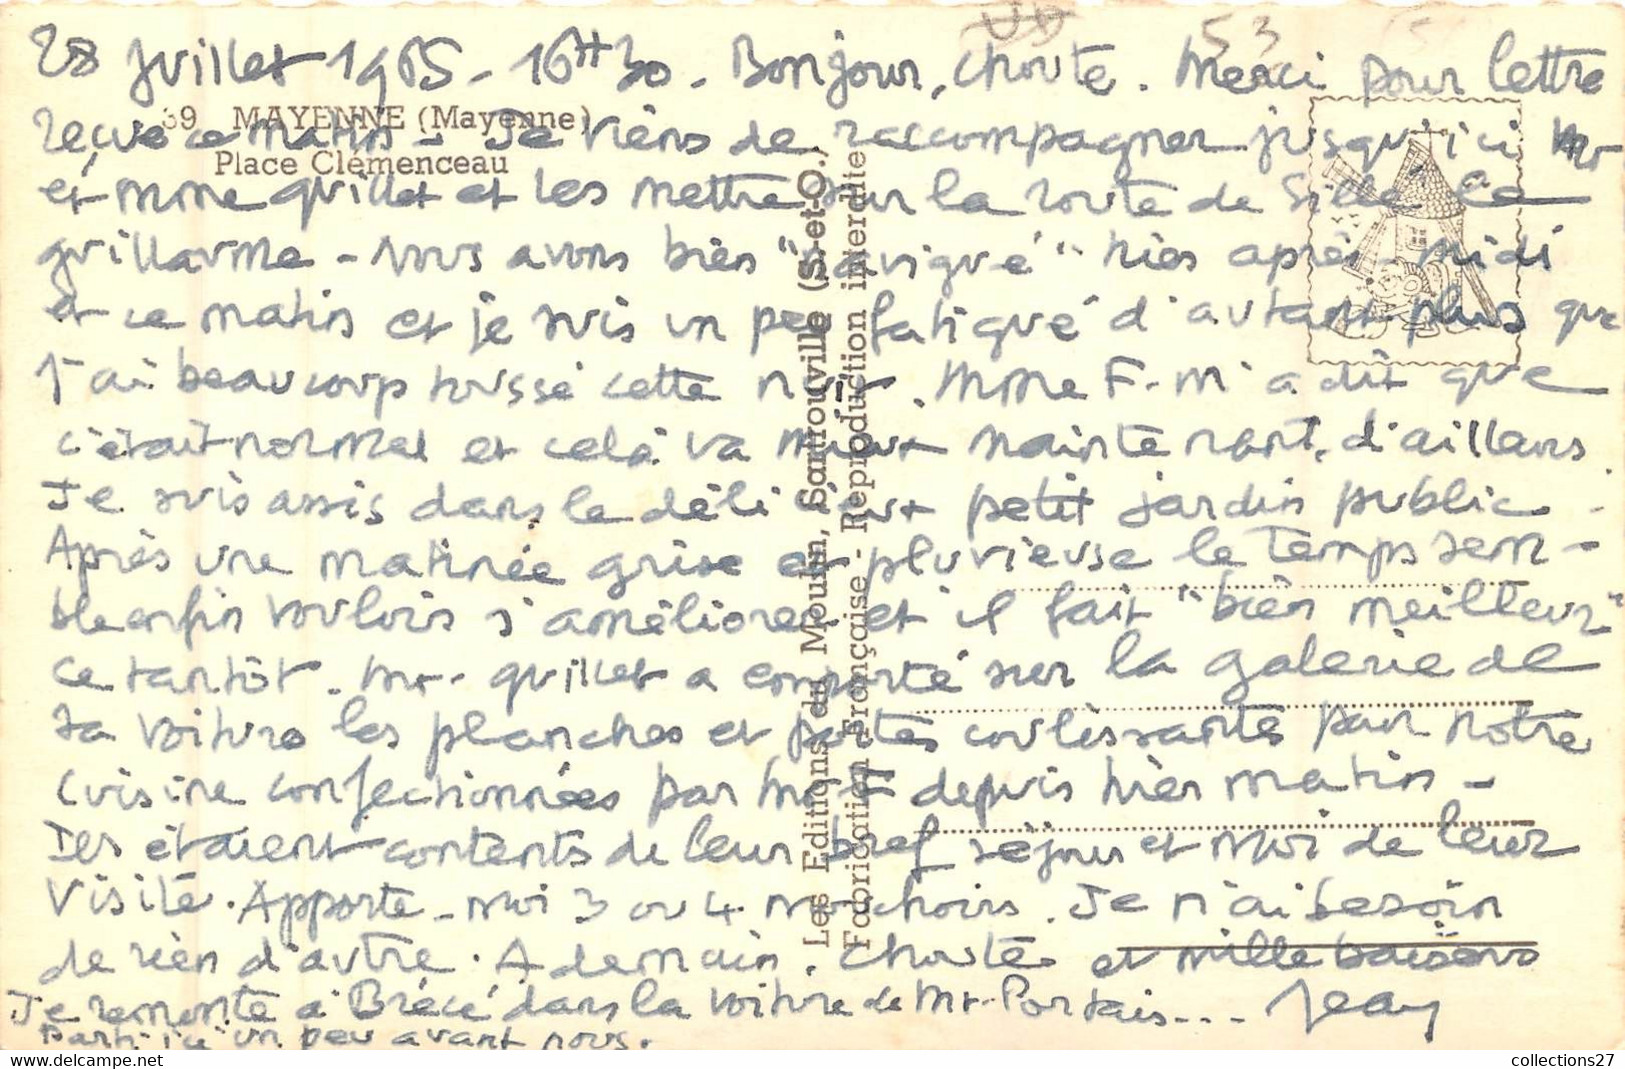 28 Juillet 1965 - 16H30. Bonjour, Choute. Merci pour lettre
reçue ce matin - Je viens de raccompagner jusqu'ici Mr
et Mme Quillet et les mettre sur la route de Sillé Le
Guillaume - Nous avons bien "navigué" hier après midi
et ce matin et je suis un peu fatigué d'autant plus que
j'ai beaucoup toussé cette nuit. Mme F. m'a dit que
c'était normal et celà va mieux maintenant, d'ailleurs.
Je suis assis dans le délicieux petit jardin public.
Après une matinée grise et pluvieuse le temps sem-
ble enfin vouloir s'améliorer et il fait "bien meilleur"
ce tantôt. Mr. Quillet a emporté sur la galerie de
sa voiture les planches et portes coulissantes pour notre
cuisine confectionnées par Mr F depuis hier matin -
Ils étaient contents de leur bref séjour et moi de leur
visite. Apporte-moi 3 ou 4 mouchoirs. Je n'ai besoin
de rien d'autre. A demain, Choute et mille baisers
Je remonte à Brécé dans la voiture de Mr. Portais... Jean
parti ici un peu avant nous.
39 MAYENNE (Mayenne)
Place Clémenceau
Les Editions du Moulin, Sartrouville (S.-et-O.)
Fabrication Française - Reproduction interdite
53
collections27